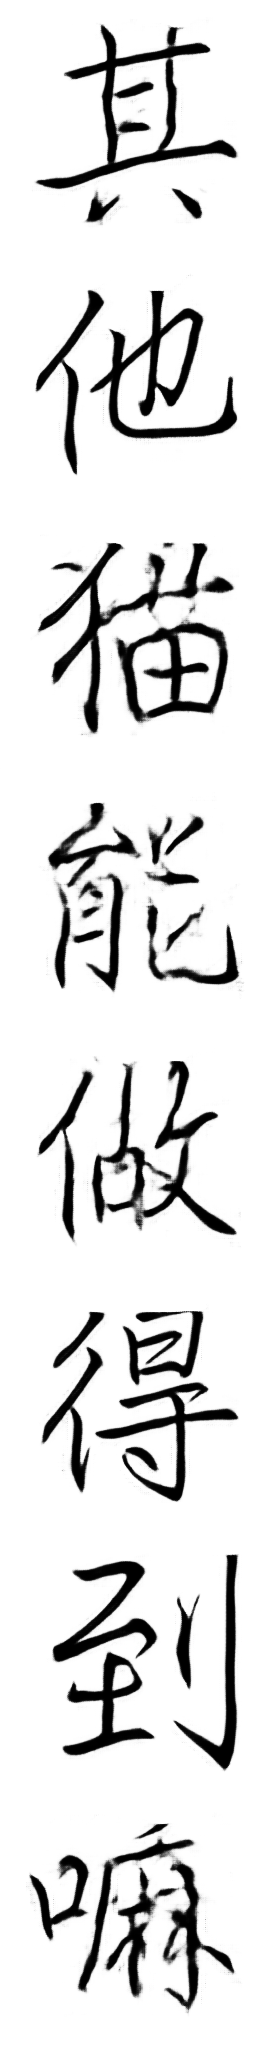 其他猫能做得到嘛